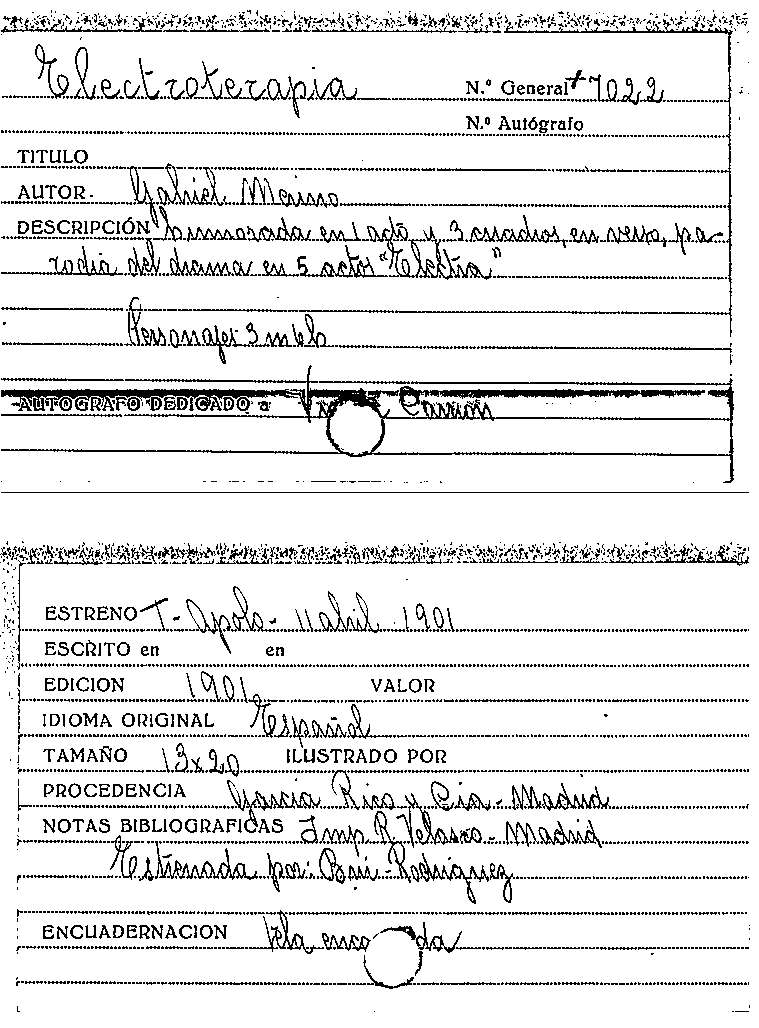 Electroterapia
N.º General + 7022
N.º Autógrafo
TITULO
AUTOR- Gabriel Merino
DESCRIPCIÓN humorada en 1 acto y 3 cuadros, en verso, pa-
rodia del drama en 5 actos "Electra"
Personajes 3 m 6 h
AUTOGRAFO DEDICADO a Carrión
ESTRENO T- Apolo- 11 abril 1901
ESCRITO en en
EDICION 1901 VALOR
IDIOMA ORIGINAL Español
TAMAÑO 13x20 ILUSTRADO POR
PROCEDENCIA Garcia Rico y Cia- Madrid
NOTAS BIBLIOGRAFICAS Imp R. Velasco- Madrid
Estrenada por: Brú-Rodriguez
ENCUADERNACION tela